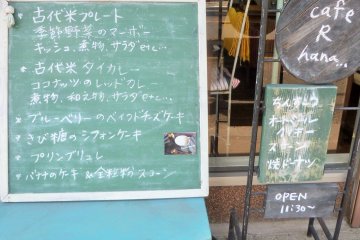 古代米プレート
季節野菜のマーボー
キッシュ、煮物、サラダetc...
古代米タイカレー
ココナッツのレッドカレー
煮物、和え物、サラダetc...
ブルーベリーのベイクドチーズケーキ
きび糖のシフォンケーキ
プリンブリュレ
バナナのケーキ & 全粒粉スコーン
cafe
R
hana...
クッキー
スコーン
焼ドーナツ
OPEN
11:30~